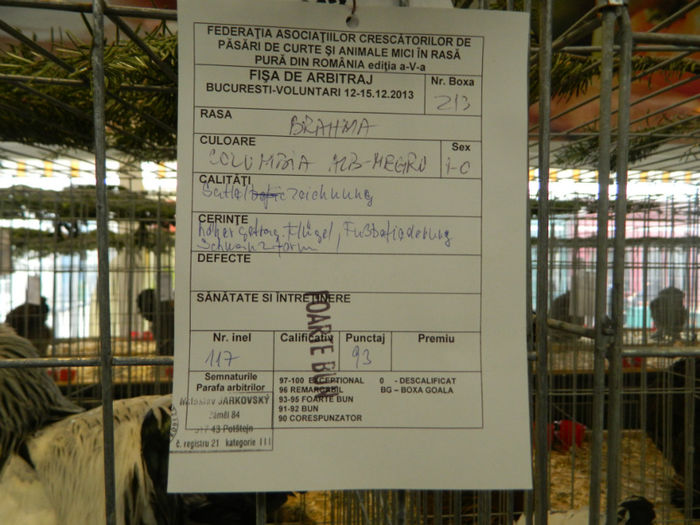 FEDERAŢIA ASOCIAŢIILOR CRESCĂTORILOR DE
PĂSĂRI DE CURTE ŞI ANIMALE MICI ÎN RASĂ
PURĂ DIN ROMÂNIA ediţia a-V-a
FIŞA DE ARBITRAJ
BUCURESTI-VOLUNTARI 12-15.12.2013
Nr. Boxa
213
RASA
BRAHMA
CULOARE
COLUMBIA ALB-NEGRU
Sex
1-0
CALITĂŢI
Zeichnung
CERINŢE
Flügel, Fußbefiederung
Schwanzform
DEFECTE
SĂNĂTATE SI ÎNTREŢINERE
FOARTE BUN
Nr. inel Calificativ Punctaj Premiu
117 93
Semnaturile
Parafa arbitrilor
97-100 EXCEPTIONAL 0 - DESCALIFICAT
96 REMARCABIL BG – BOXA GOALA
93-95 FOARTE BUN
91-92 BUN
90 CORESPUNZATOR
JARKOVSKÝ
84
517 43 Potštejn
č. registru 21 kategorie III